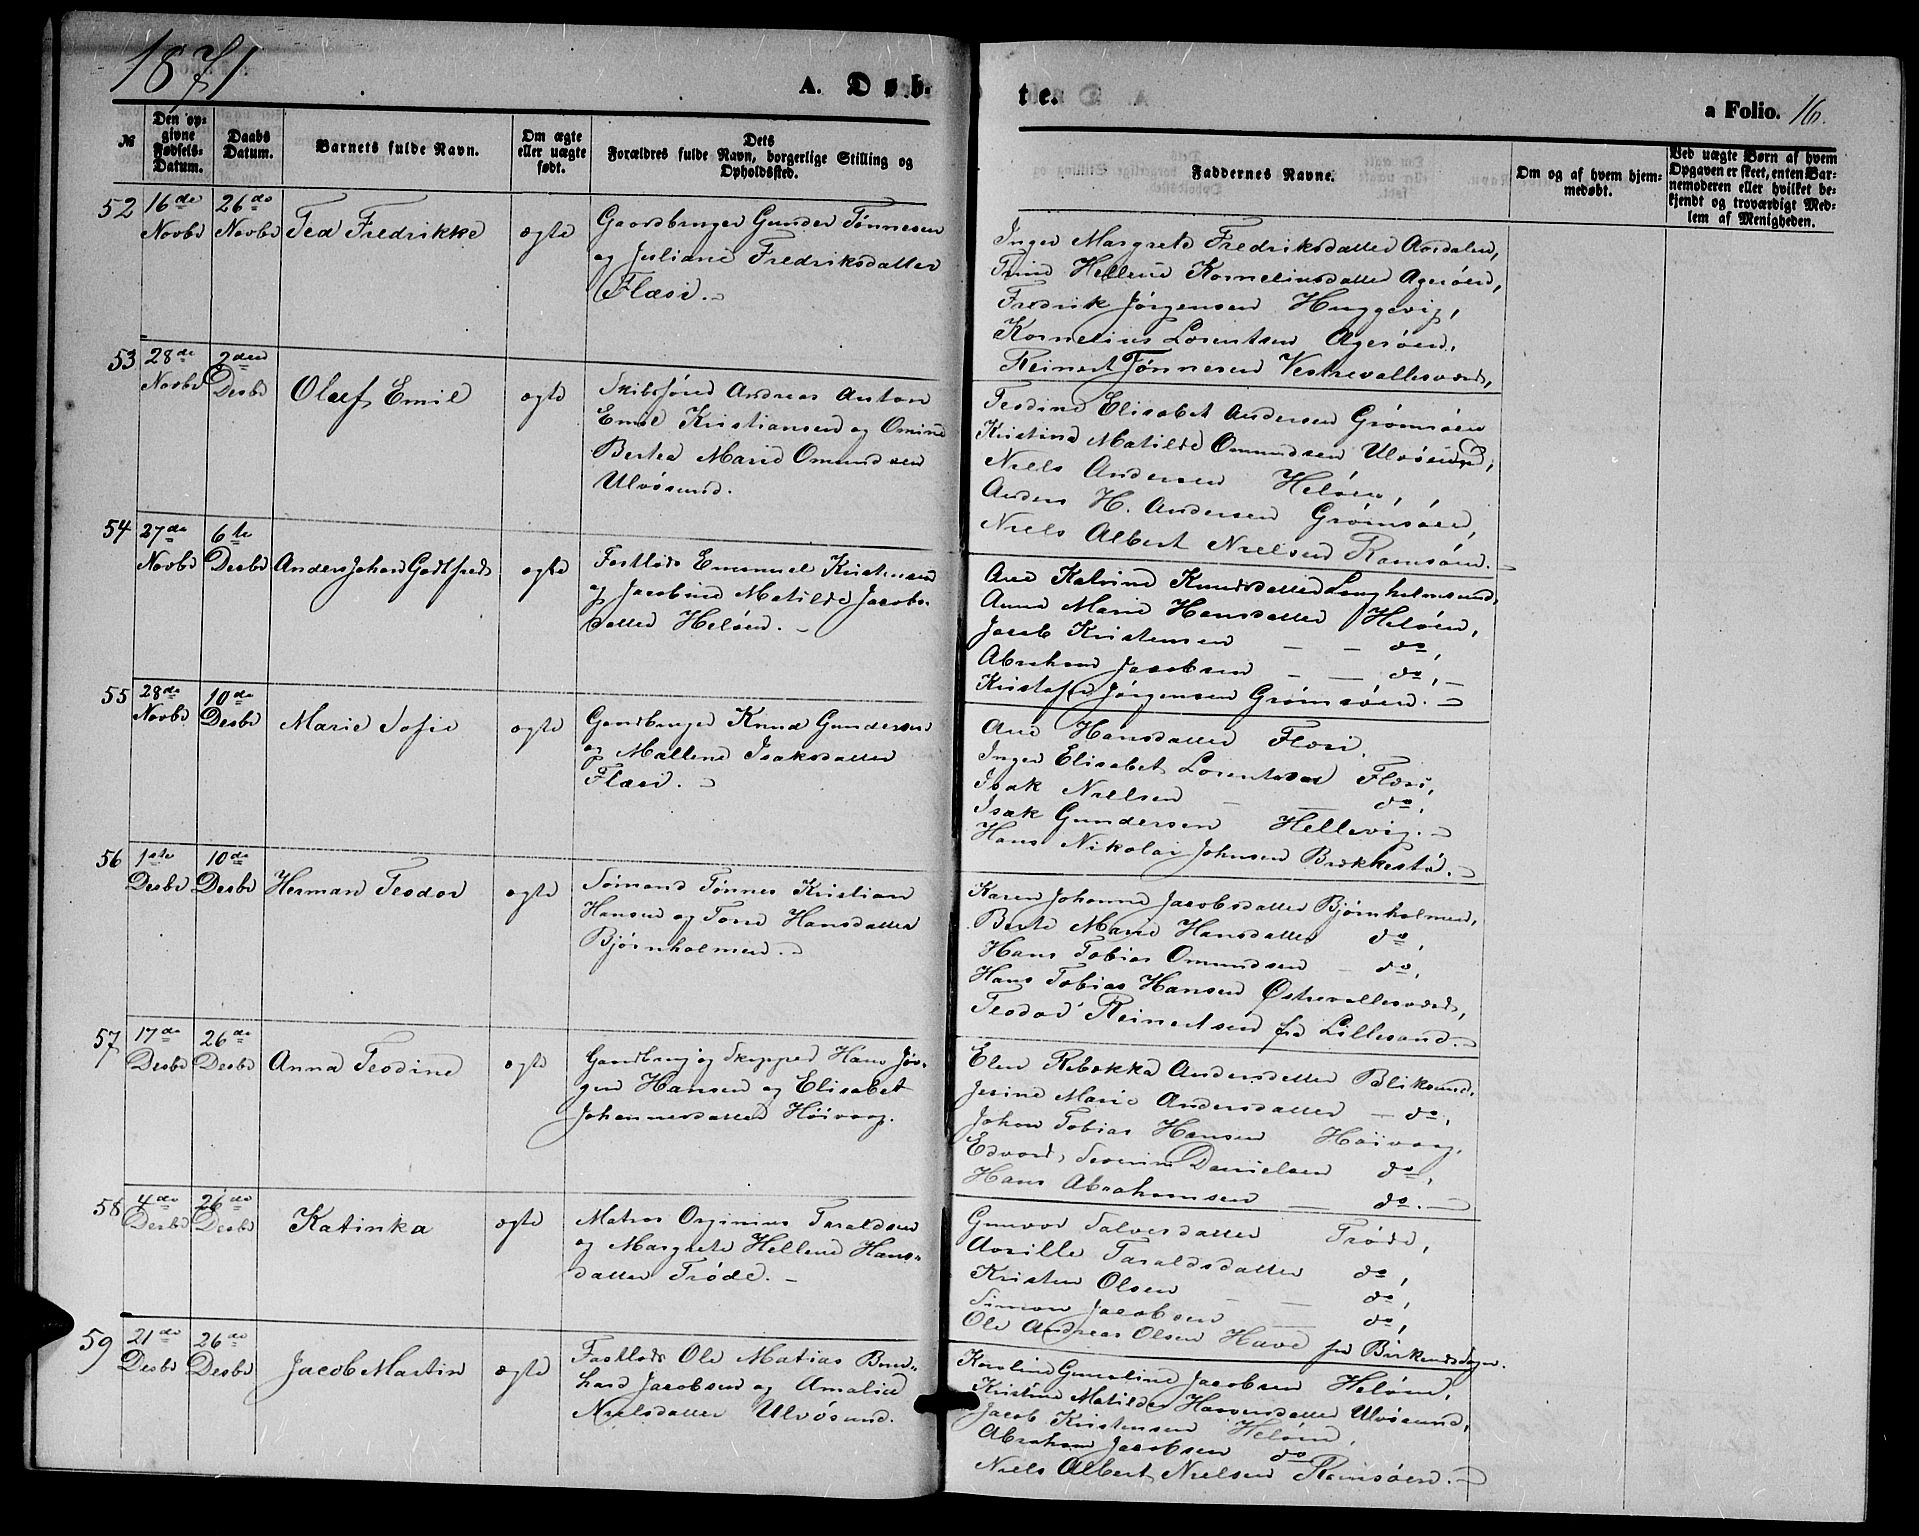 1871
A. Døb-
te.
a Folio. 16.
№
Den op-
givne
Fødsels-
Datum.
Daabs
Datum.
Barnets fulde Navn.
Om ægte
eller uægte
født.
Dets
Forældres fulde Navn, borgerlige Stilling og
Opholdssted.
Faddernes Navne.
Om og af hvem hjem-
medøbt.
Ved uægte Børn af hvem
Opgaven er skeet, enten Bar-
nemoderen eller hvilket be-
kjendt og troværdigt Med-
lem af Menigheden.
52
16de
Novbr
26de
Novbr
Tea Fredrikke
ægte
Gaardbruger Gunder Tønnesen
og Juliane Fredriksdatter
Flæsi.
Inger Margrete Fredriksdatter Aasdalen,
Trine Hellene Kornelinsdatter Agerøen,
Fredrik Jørgensen Huggevig,
Kornelius Lorentsen Agerøen,
Reinert Tønnesen Vestrevallesverd,
53
28de
Novbr
2den
Desbr
Olaf Emil
ægte
Skibsfører Andreas Anton
Emil Kristiansen og Omine
Bertea Marie Omundsen
Ulvøsund.
Teodine Elisabet Andersen Grømsøen
Kristine Matilde Omundsen Ulvøsund,
Niels Andersen Heløen,
Anders H. Andersen Grømsøen,
Niels Albert Nielsen Ramsøen.
54
27de
Novbr
6te
Desbr
Anders Johan Godtfred
ægte
Fastlods Emanuel Kristensen
og Jacobine Matilde Jacobs-
datter Heløen.
Ane Katrine Knudsdatter Langholmsund,
Anne Marie Hansdatter Heløen,
Jacob Kristensen do,
Abraham Jacobsen do,
Kristofer Jørgensen Grømsøen.
55
28de
Novbr
10de
Desbr
Marie Sofie
ægte
Gaardbruger Knud Gundersen
og Mallene Isaksdatter
Flæsi.
Ane Hansdatter Flæsi.
Inger Elisabet Lorentsdat Flæsi,
Isak Nielsen do,
Isak Gundersen Hellevig.
Hans Nikolai Johnsen Brækkestø.
56
1ste
Desbr
10de
Desbr
Herman Teodor
ægte
Sømand Tønnes Kristian
Hansen og Tone Hansdatter
Bjørnholmen.
Karen Johanne Jacobsdatter Bjørnholmen,
Berte Marie Hansdatter do,
Hans Tobias Omundsen do,
Hans Tobias Hansen Østrevallesverd,
Teodor Reinertsen fra Lillesand.
57
17de
Desbr
26de
Desbr
Anna Teodine
ægte
Gaardbrug og Skipper Hans Jør-
gen Hansen og Elisabet
Johannesdatter Høivaag.
Elen Rebekka Andersdatter Bliksund,
Jesine Marie Andersdatter do,
Johan Tobias Hansen Høivaag,
Edvard Severin Danielsen do,
Hans Abrahamsen do.
58
4de
Desbr
26de
Desbr
Katinka
ægte
Matros Orginius Taraldsen
og Margrete Hellene Hans-
datter Trøde.
Gunvor Salvesdatter Trøde,
Assille Taraldsdatter do,
Kristen Olsen do,
Simon Jacobsen do,
Ole Andreas Olsen Have fra Birkenes
59
21de
Desbr
26de
Desbr
Jacob Martin
ægte
Fastlods Ole Matias Bern-
hard Jacobsen og Amalie
Nielsdatter Ulvøsund.
Karoline Gunaline Jacobsen Heløen,
Kristine Matilde Hansdatter Ulvøsund,
Jacob Kristensen Heløen,
Abraham Jacobsen do
Niels Albert Nielsen Ramsøen.